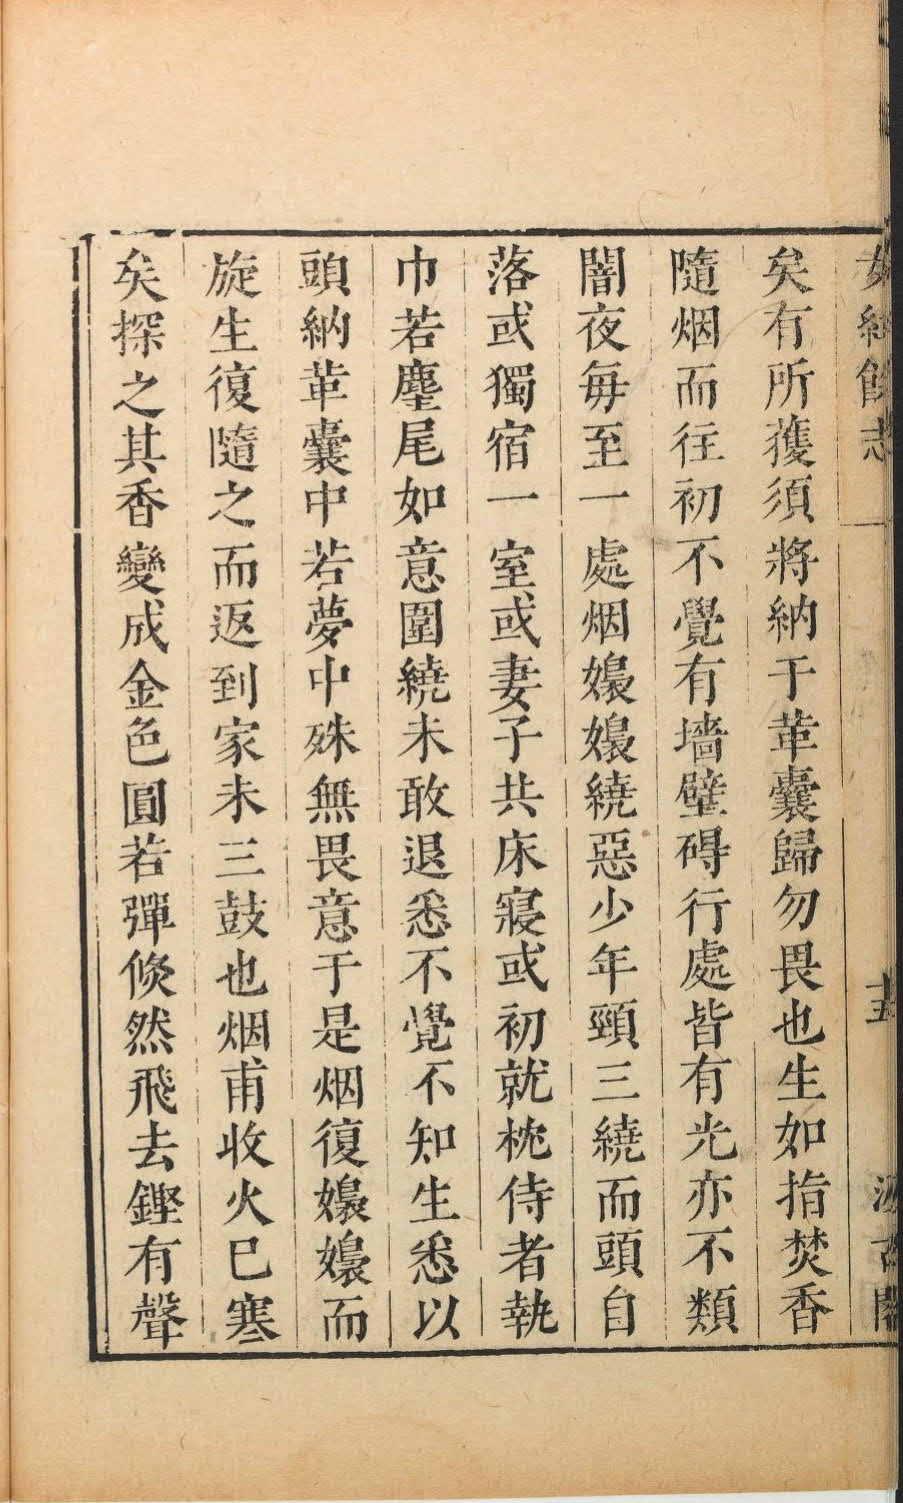 女紅餘志
十五
汲古閣
矣有所獲須將納于革囊歸勿畏也生如指焚香
隨烟而往初不覺有墻壁碍行處皆有光亦不類
闇夜每至一處烟嬝嬝繞惡少年頸三繞而頭自
落或獨宿一室或妻子共床寢或初就枕侍者執
巾若麈尾如意圍繞未敢退悉不覺不知生悉以
頭納革囊中若夢中殊無畏意于是烟復嬝嬝而
旋生復隨之而返到家未三鼓也烟甫收火巳寒
矣探之其香變成金色圓若彈倏然飛去鏗有聲